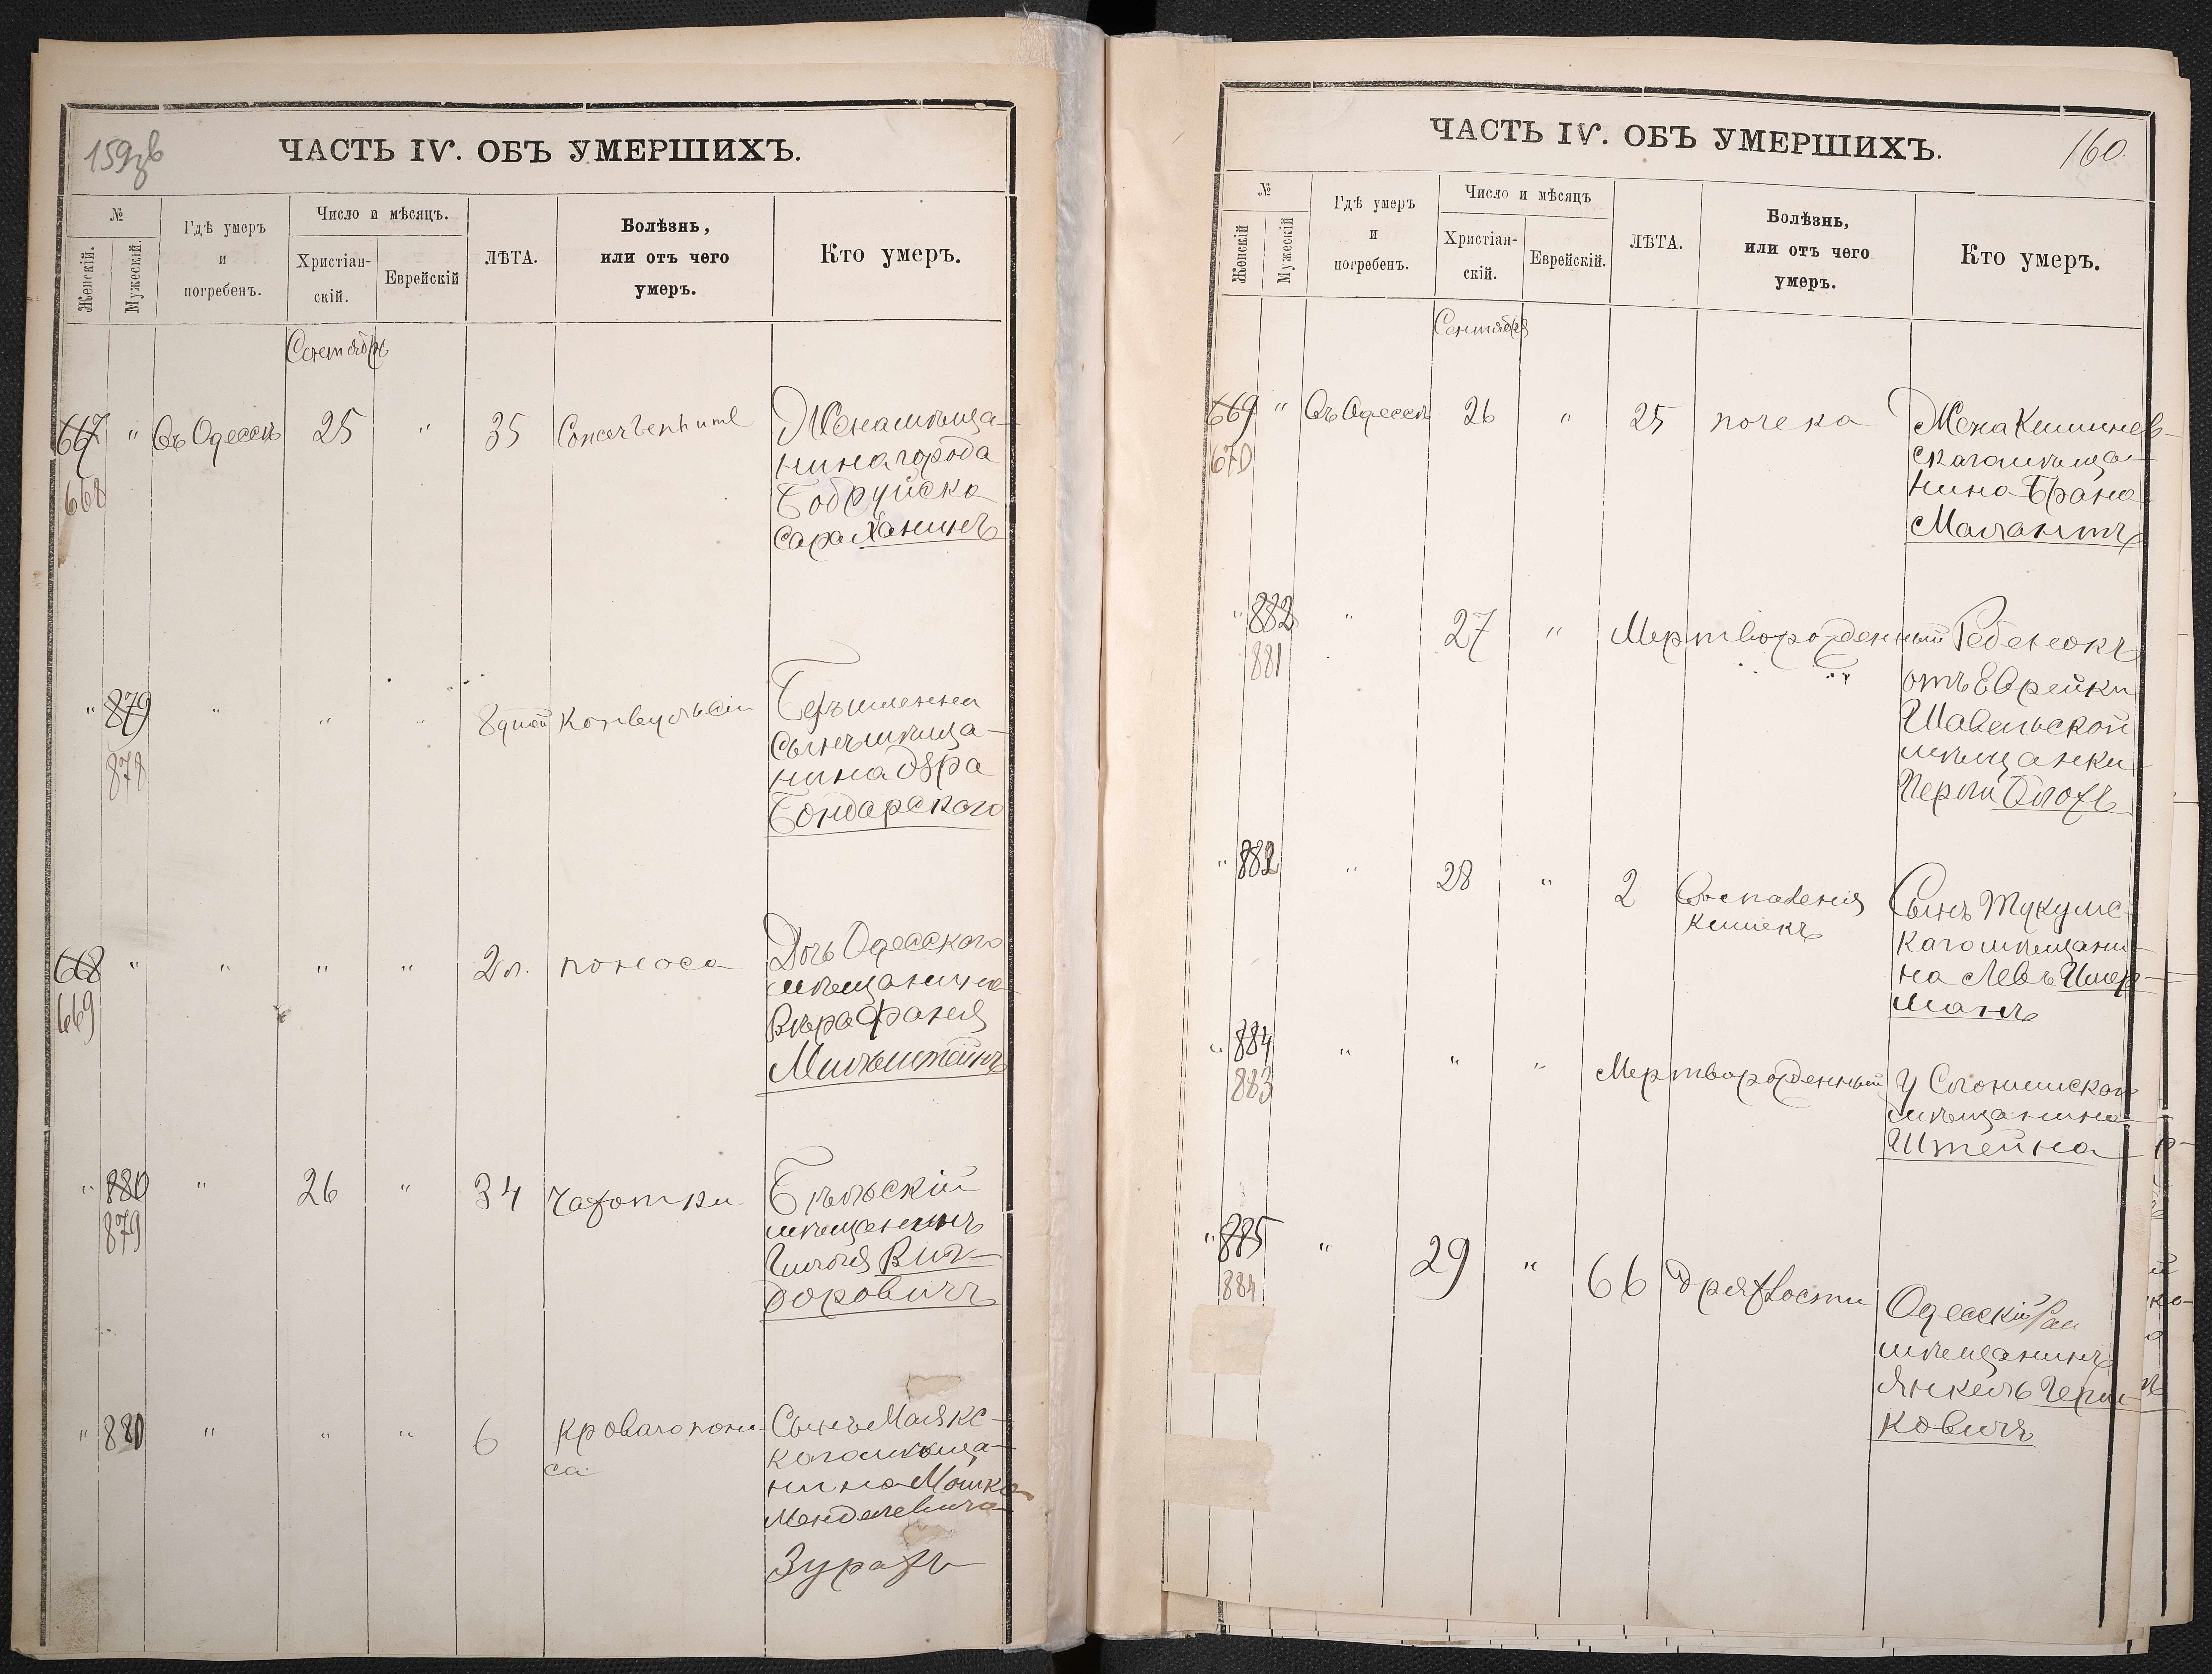 159 об
ЧАСТЬ IV. ОБЪ УМЕРШИХЪ.
№
Женскій.
Мужескій.
Гдѣ умеръ
и
погребенъ.
Число и мѣсяцъ.
Христіан-
скій.
Еврейскій
ЛѢТА.
Болѣзнь,
или отъ чего
умеръ.
Кто умеръ.
Сентябрь
667 " Въ Одессѣ 25 " 35
668
Жена мѣща-
нина города
Бобруйска
Сара Ханинъ
" 879 " " " 8 дней Конвульсіи
878
сынъ мѣща-
нина
Бондарского
668 " " " " 2 л. поноса
669
Дочь Одесского
мѣщанина
Вѣра Франя
Мильштейнъ
" 880 " 26 " 34 Чахотки
879
Бѣльскій
мѣщанинъ
Виг-
доровичъ
" 880 " " " 6 Кроваго поно-
са
Сынъ Маякс-
кого мѣща-
нина Мошка
Менделевича
Зурахъ
ЧАСТЬ IV. ОБЪ УМЕРШИХЪ.
160.
№
Женскій
Мужескій
Гдѣ умеръ
и
погребенъ.
Число и мѣсяцъ
Христіан-
скій.
Еврейскій.
ЛѢТА.
Болѣзнь,
или отъ чего
умеръ.
Кто умеръ.
Сентября
669 " Въ Одессѣ 26 " 25 почека
670
Жена Кишинев-
скаго мѣща-
нина Брана
" 882 " 27 " Мертворожденный Ребенокъ
881
отъ Еврейки
Шавельской
мѣщанки
Перли Блохъ
" 882 " 28 " 2 Воспаленія
кишекъ
Сынъ Тукумс-
каго мѣщани-
на Левъ Имер-
манъ
" 884 " " " Мертворожденный У Слонимскаго
883
мѣщанина
Штейна
" 885 " 29 " 66 Дряхлости
884
Одесскій
мѣщанинъ
Янкель Герш-
ковичъ